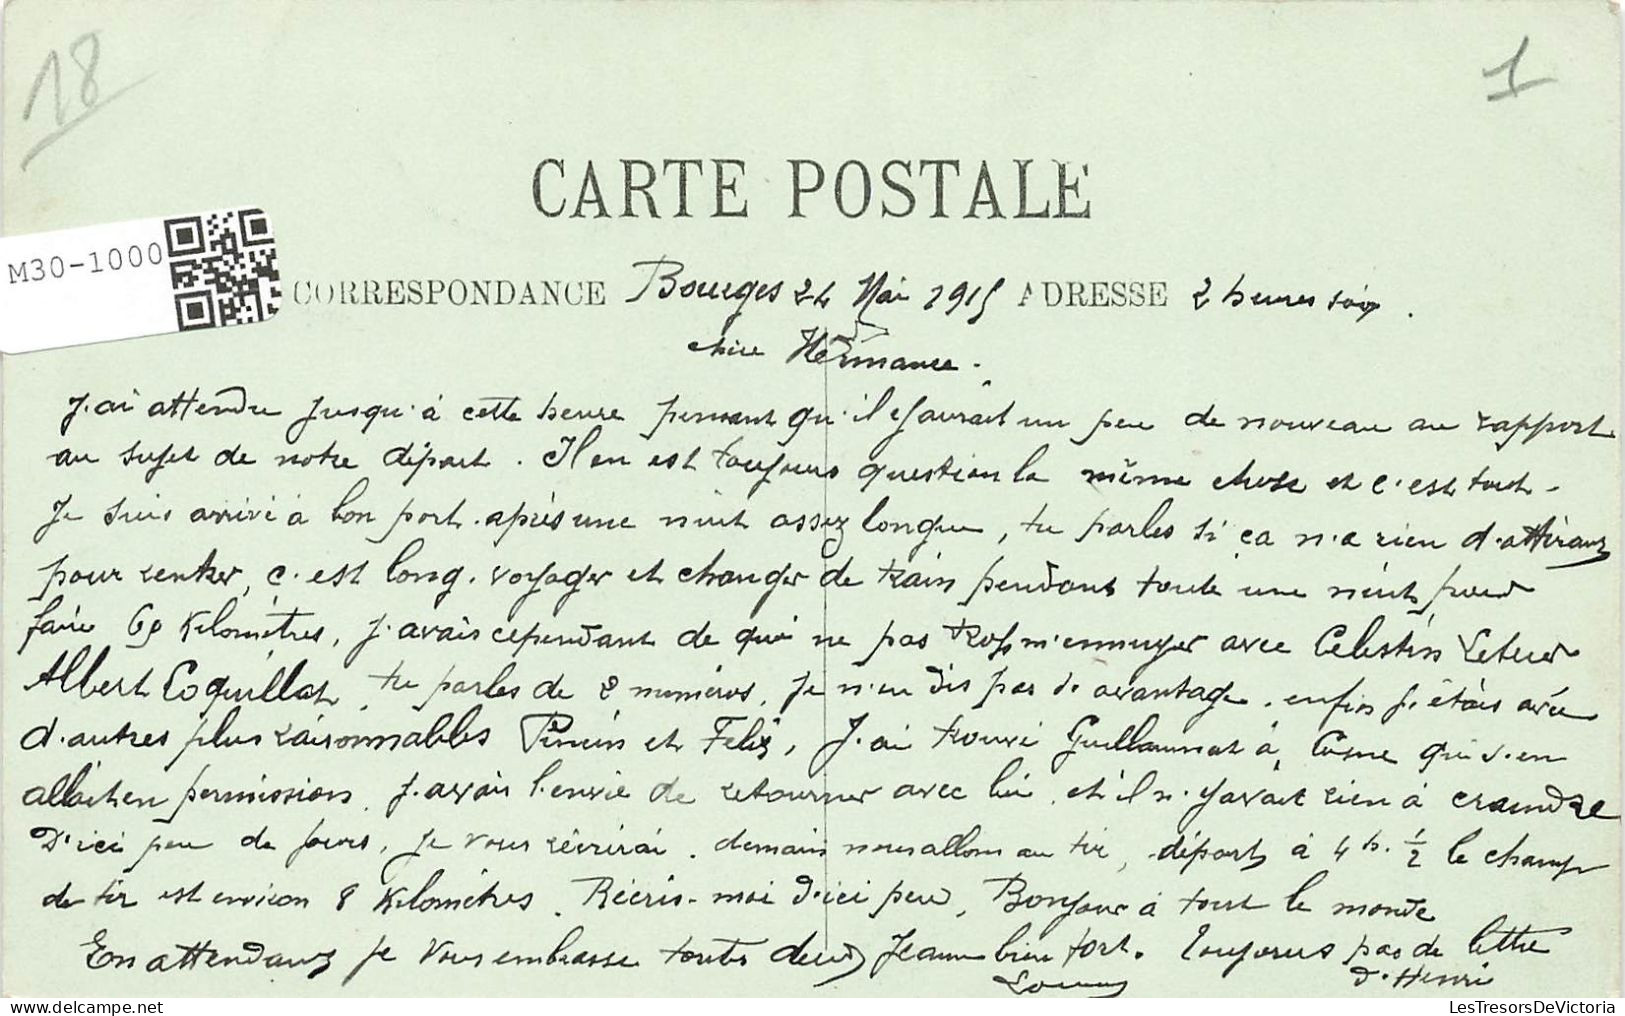 18
1
CARTE POSTALE
M30-1000
CORRESPONDANCE Bourges 24 Mai 1915 ADRESSE 2 heures soir.
chère Hermance.
J'ai attendu jusqu'à cette heure pensant qu'il y aurait un peu de nouveau au rapport
au sujet de notre départ. Il en est toujours question la même chose et c'est tout.
Je suis arrivé à bon port après une nuit assez longue, tu parles si ça n'a rien d'attirant
pour rentrer, c'est long. voyager et changer de train pendant toute une nuit pour
faire 69 Kilomètres, j'avais cependant de quoi ne pas trop m'ennuyer avec Célestin
Albert Coquillat, tu parles de 2 numéros, je n'en dis pas davantage. enfin j'étais avec
d'autres plus raisonnables et Felix, J'ai trouvé Guillaumat à Cosne qui s'en
allait en permission, j'avais l'envie de retourner avec lui, et il n'y avait rien à craindre
D'ici peu de jours, je vous récrirai. demain nous allons au tir, départ à 4 h. 1/2 le champ
de tir est environ 8 Kilomètres. Récris-moi d'ici peu, Bonjour à tout le monde
En attendant je vous embrasse toutes deux Jeanne bien fort. Toujours pas de lettre
d'Henri
LesTresorsDeVictoria